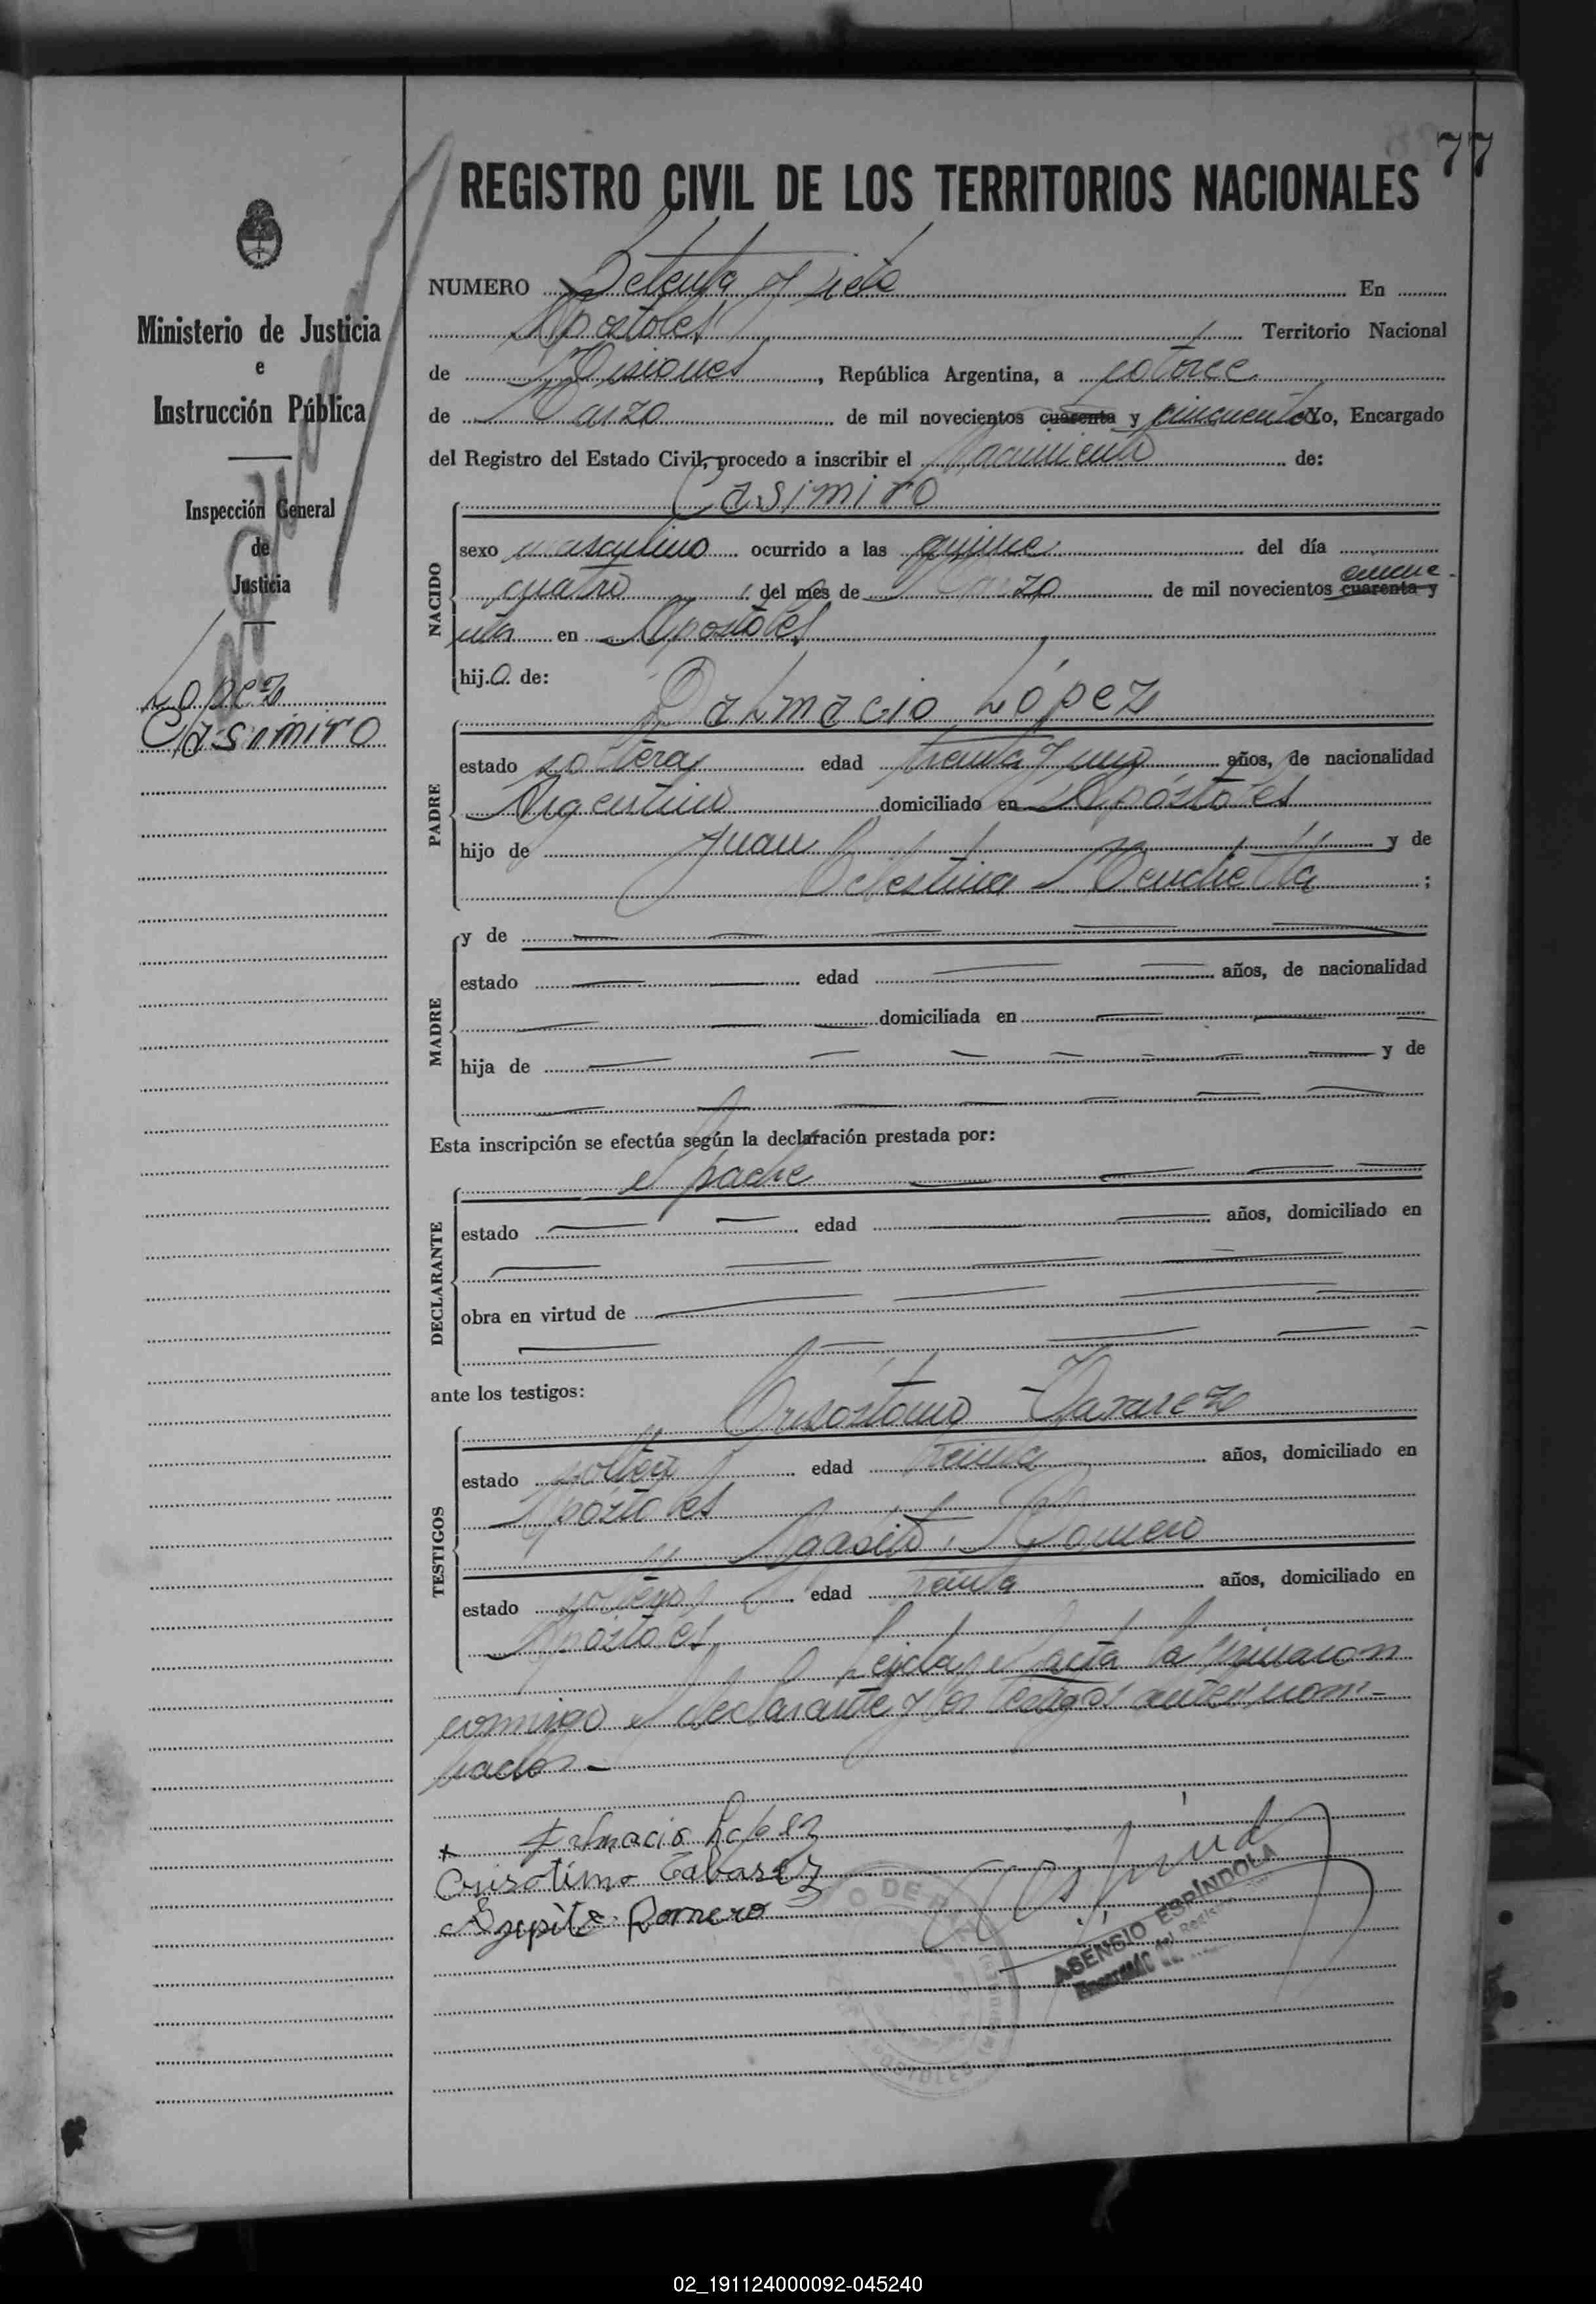 77
REGISTRO CIVIL DE LOS TERRITORIOS NACIONALES
Ministerio de Justicia
e
Instrucción Pública
Inspección General
de
Justicia
López
Casimiro
NUMERO Setenta y siete En
Apostoles Territorio Nacional
de Misiones, República Argentina, a catorce
de Marzo de mil novecientos cuarenta y cincuenta Yo, Encargado
del Registro del Estado Civil, procedo a inscribir el Nacimiento de:
Casimiro
NACIDO
sexo masculino ocurrido a las quince del día
cuatro del mes de Marzo de mil novecientos cuarenta y cincue-
nta en Apostoles
hijo de:
Dalmacio López
PADRE
estado soltero edad treinta y uno años, de nacionalidad
Argentino domiciliado en Apóstoles
hijo de Juan y de
Celestina ;
MADRE
y de
estado edad años, de nacionalidad
domiciliada en
hija de y de
Esta inscripción se efectúa según la declaración prestada por:
el padre
DECLARANTE
estado edad años, domiciliado en
obra en virtud de
ante los testigos:
Crisóstomo
TESTIGOS
estado soltero edad treinta años, domiciliado en
Apóstoles
Romero
estado soltero edad treinta años, domiciliado en
Apóstoles
Leída el acta la firmaron
conmigo el declarante y los testigos antes nom-
brados -
Dalmacio López
Romero
ASENSIO ESPÍNDOLA
Encargado del Registro
02_191124000092-045240